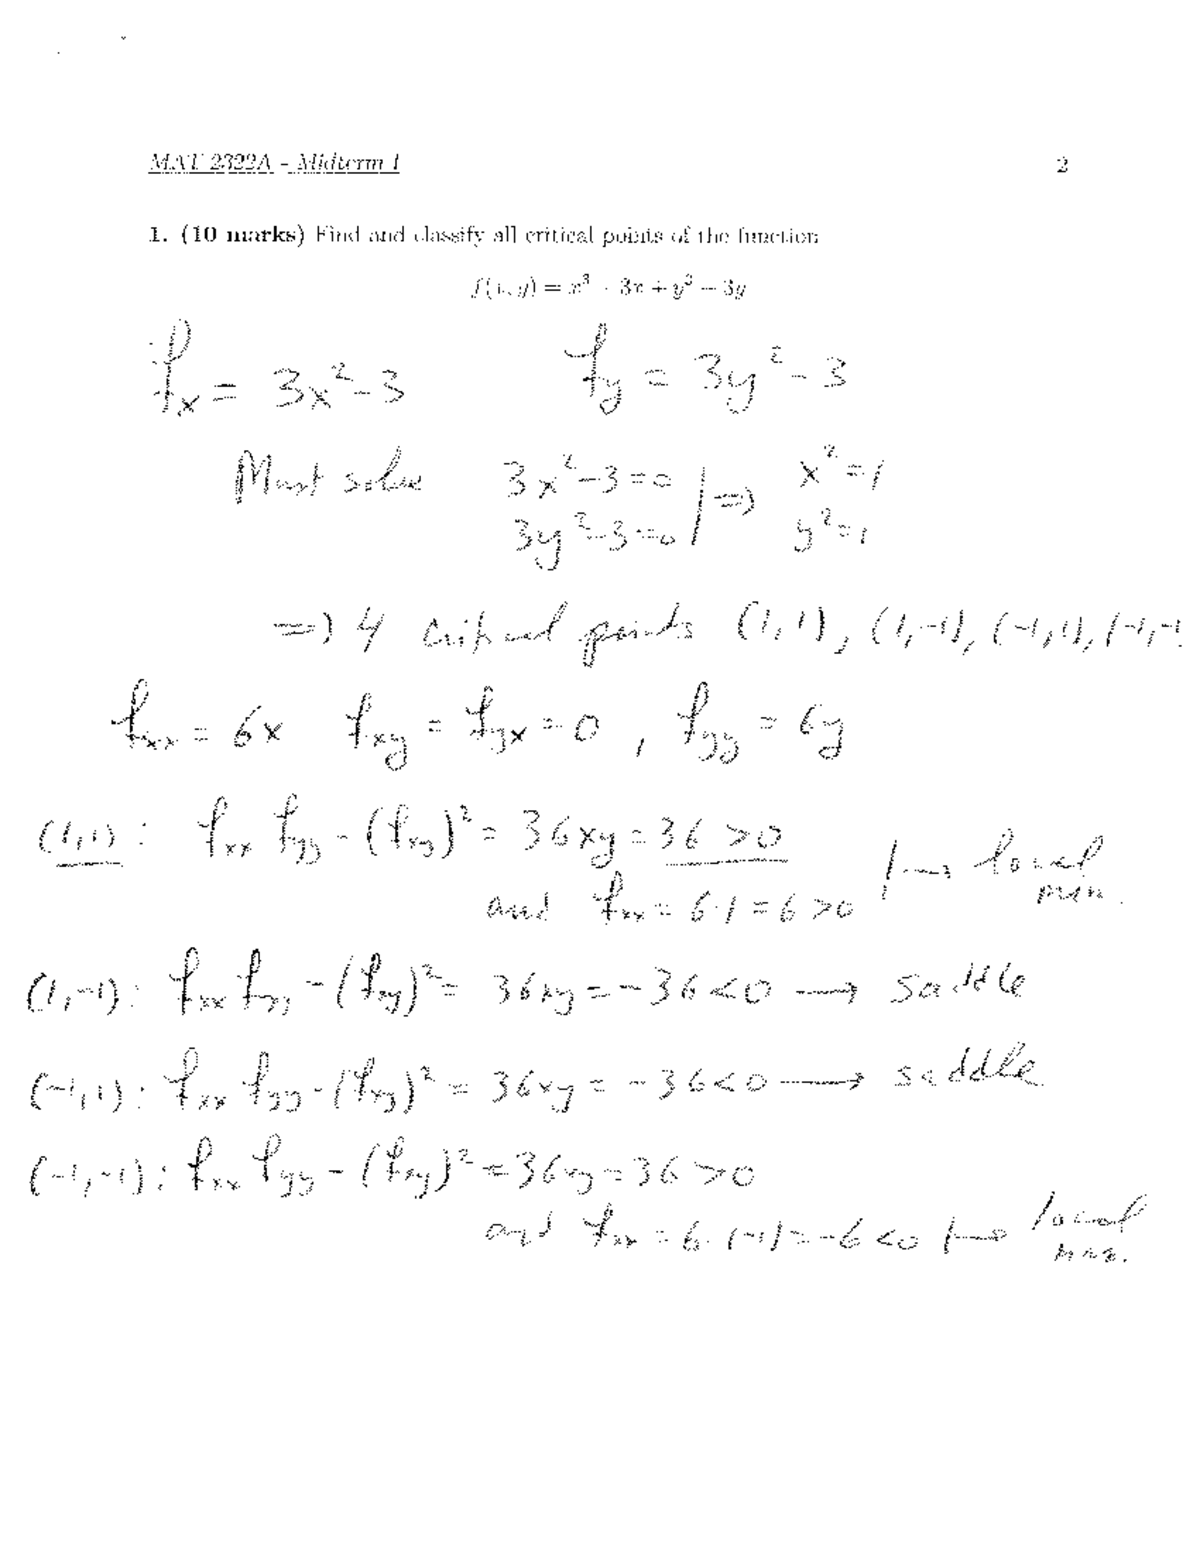 MAT 2322A - Midterm 1
2
1. (10 marks) Find and classify all critical points of the function
f(x, y) = x³ - 3x + y³ - 3y
fx = 3x² - 3    fy = 3y² - 3
Must solve 3x² - 3 = 0 | => x² = 1
3y² - 3 = 0 y² = 1
=> 4 critical points (1,1), (1,-1), (-1,1), (-1,-1
fxx = 6x fxy = fyx = 0 , fyy = 6y
(1,1) : fxx fyy - (fxy)² = 36xy = 36 > 0 |→ local min.
and fxx = 6·1 = 6 > 0
(1,-1) : fxx fyy - (fxy)² = 36xy = -36 < 0 → saddle
(-1,1) : fxx fyy - (fxy)² = 36xy = -36 < 0 → saddle
(-1,-1) : fxx fyy - (fxy)² = 36xy = 36 > 0
and fxx = 6·(-1) = -6 < 0 |→ local max.